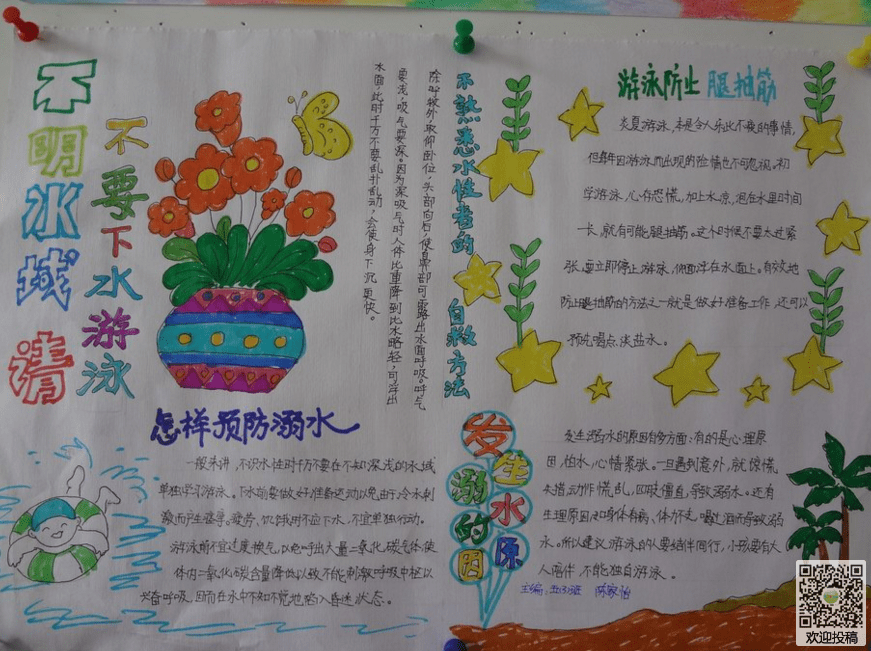 不明水域请
不要下水游泳
怎样预防溺水
一般来讲，不识水性时千万不要在不知深浅的水域
单独学习游泳。下水前要做好准备运动以免由于冷水刺
激而产生痉挛。疲劳、饥饿用不应下水，不宜单独行动。
游泳前不宜过度换气，以免呼出大量二氧化碳气体使
体内二氧化碳含量降低以致不能刺激呼吸中枢以
兴奋呼吸，因而在水中不知不觉地陷入昏迷状态。
不熟悉水性者的 自救方法
除呼救外，取仰卧位，头部向后，使鼻部可露出水面呼吸。呼气
要浅，吸气要深。因为深吸气时人体比重降到比水略轻，可浮出
水面，此时千万不要乱扑乱动，会使身下沉更快。
游泳防止腿抽筋
炎夏游泳，本是令人乐此不疲的事情，
但每年因游泳而出现的险情也不可忽视。初
学游泳，心存恐慌，加上水凉，泡在水里时间
一长，就有可能腿抽筋。这个时候不要太过紧
张，要立即停止游泳，仰面浮在水面上。有效地
防止腿抽筋的方法之一就是做好准备工作，还可以
预先喝点淡盐水。
发生溺水的原因
发生溺水的原因有多方面：有的是心理原
因，怕水，心情紧张。一旦遇到意外，就惊慌
失措，动作慌乱，四肢僵直，导致溺水。还有
生理原因及身体有病、体力不支，喝过酒而导致溺
水。所以建议游泳的人要结伴同行，小孩要有大
人陪伴，不能独自游泳。
主编：
欢迎投稿